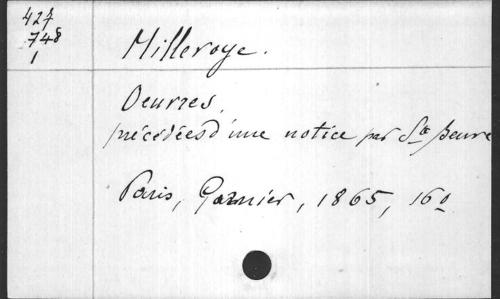 427
748
1
Millevoye.
Oeuvres,
précédées d'une notice par Ste Beuve
Paris, Garnier, 1865, 16o